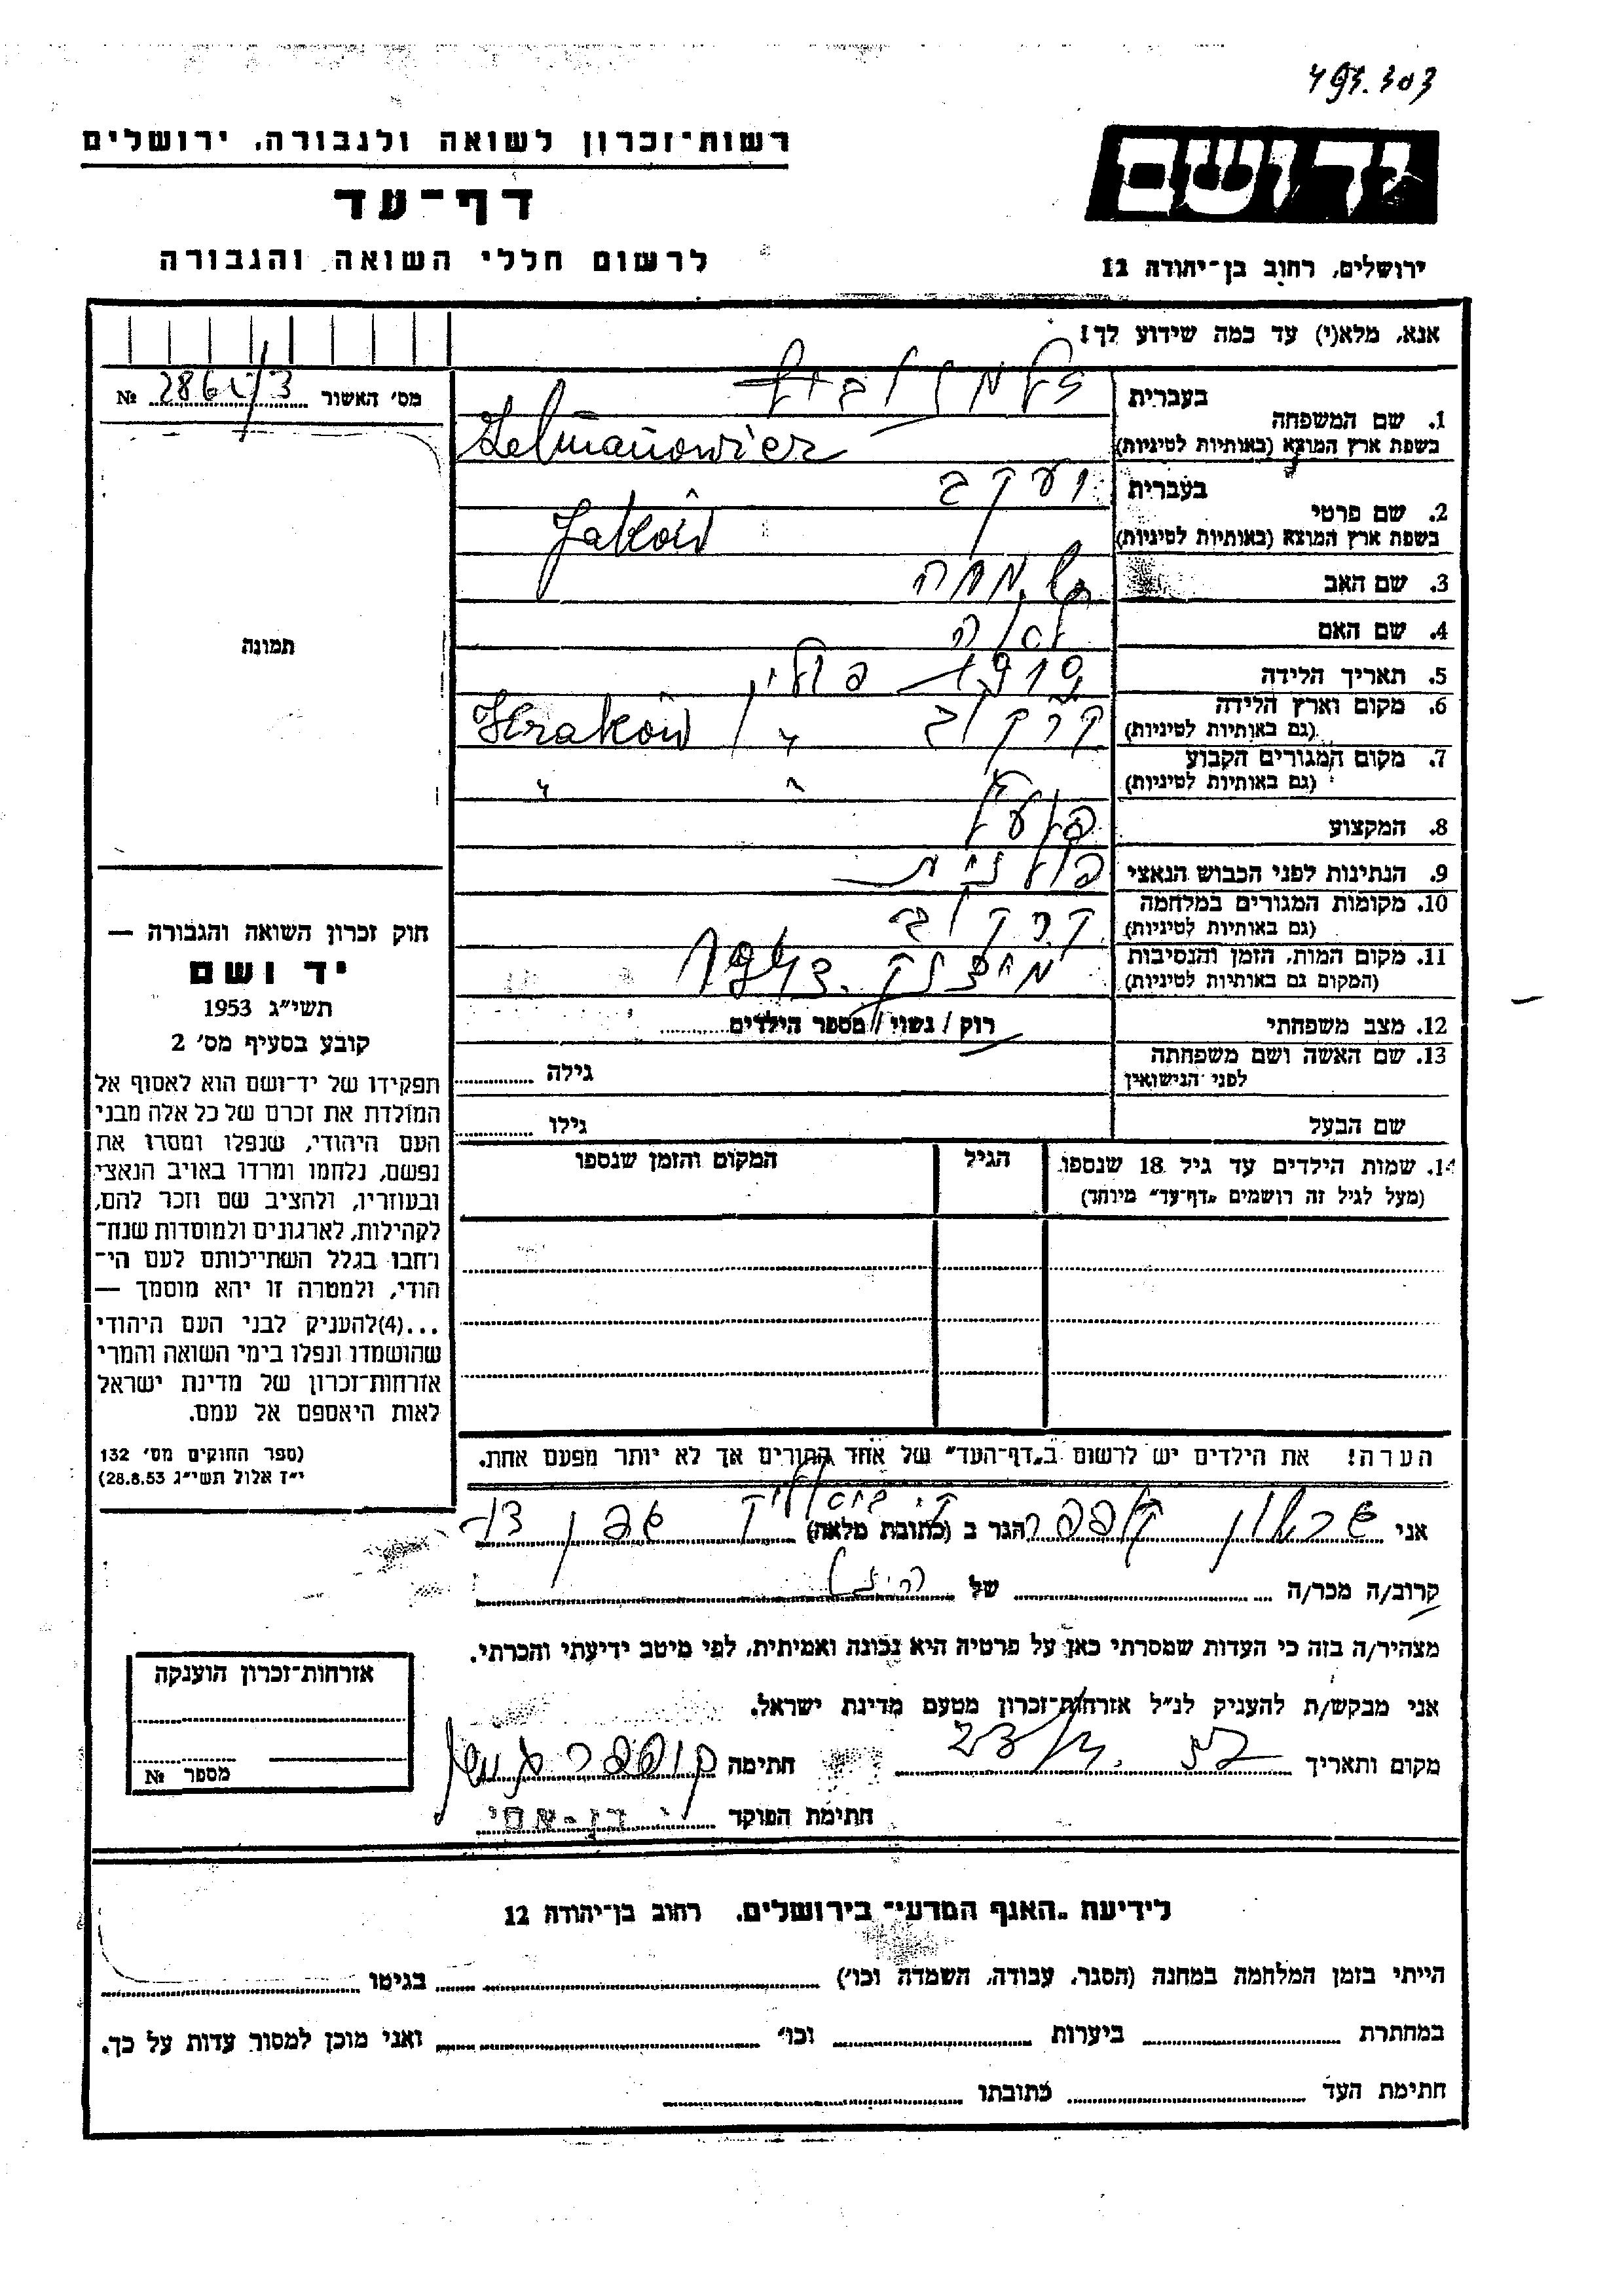 493.303
רשות־זכרון לשואה ולגבורה, ירושלים
דף־עד
לרשום חללי השואה והגבורה
יד ושם
ירושלים, רחוב בן־יהודה 12
אנא, מלא(י) עד כמה שידוע לך!
מס׳ האשור № 
תמונה
1. שם המשפחה
בעברית
בשפת ארץ המוצא (באותיות לטיניות) Zelmanowicz
2. שם פרטי
בעברית יעקב
בשפת ארץ המוצא (באותיות לטיניות) Jaków
3. שם האב שמחה
4. שם האם
5. תאריך הלידה 1919
6. מקום וארץ הלידה
(גם באותיות לטיניות) קרקוב פולין Krakow
7. מקום המגורים הקבוע
(גם באותיות לטיניות) " "
8. המקצוע פועל
9. הנתינות לפני הכבוש הנאצי פולנית
10. מקומות המגורים במלחמה
(גם באותיות לטיניות) קרקוב
11. מקום המות, הזמן והנסיבות
(המקום גם באותיות לטיניות) 1943
12. מצב משפחתי רוק / נשוי / מספר הילדים
13. שם האשה ושם משפחתה
לפני הנישואין גילה
שם הבעל גילו
14. שמות הילדים עד גיל 18 שנספו
(מעל לגיל זה רושמים „דף־עד״ מיוחד)
הגיל
המקום והזמן שנספו
חוק זכרון השואה והגבורה —
יד ושם
תשי״ג 1953
קובע בסעיף מס׳ 2
תפקידו של יד־ושם הוא לאסוף אל
המולדת את זכרם של כל אלה מבני
העם היהודי, שנפלו ומסרו את
נפשם, נלחמו ומרדו באויב הנאצי
ובעוזריו, ולהציב שם וזכר להם,
לקהילות, לארגונים ולמוסדות שנח־
רחבו בגלל השתייכותם לעם הי־
הודי, ולמטרה זו יהא מוסמך —
...(4)להעניק לבני העם היהודי
שהושמדו ונפלו בימי השואה והמרי
אזרחות־זכרון של מדינת ישראל
לאות היאספם אל עמם.
(ספר החוקים מס׳ 132
י״ז אלול תשי״ג 28.8.53)
הערה! את הילדים יש לרשום ב„דף־העד״ של אחד ההורים אך לא יותר מפעם אחת.
אני הגר ב (כתובת מלאה)
קרוב/ה מכר/ה של
מצהיר/ה בזה כי העדות שמסרתי כאן על פרטיה היא נכונה ואמיתית, לפי מיטב ידיעתי והכרתי.
אני מבקש/ת להעניק לנ״ל אזרחות־זכרון מטעם מדינת ישראל.
מקום ותאריך חתימה
חתימת הפוקד
אזרחות־זכרון הוענקה
מספר №
לידיעת „האגף המדעי״ בירושלים, רחוב בן־יהודה 12
הייתי בזמן המלחמה במחנה (הסגר, עבודה, השמדה וכו׳) בגיטו
במחתרת ביערות וכו׳ ואני מוכן למסור עדות על כך.
חתימת העד כתובתו